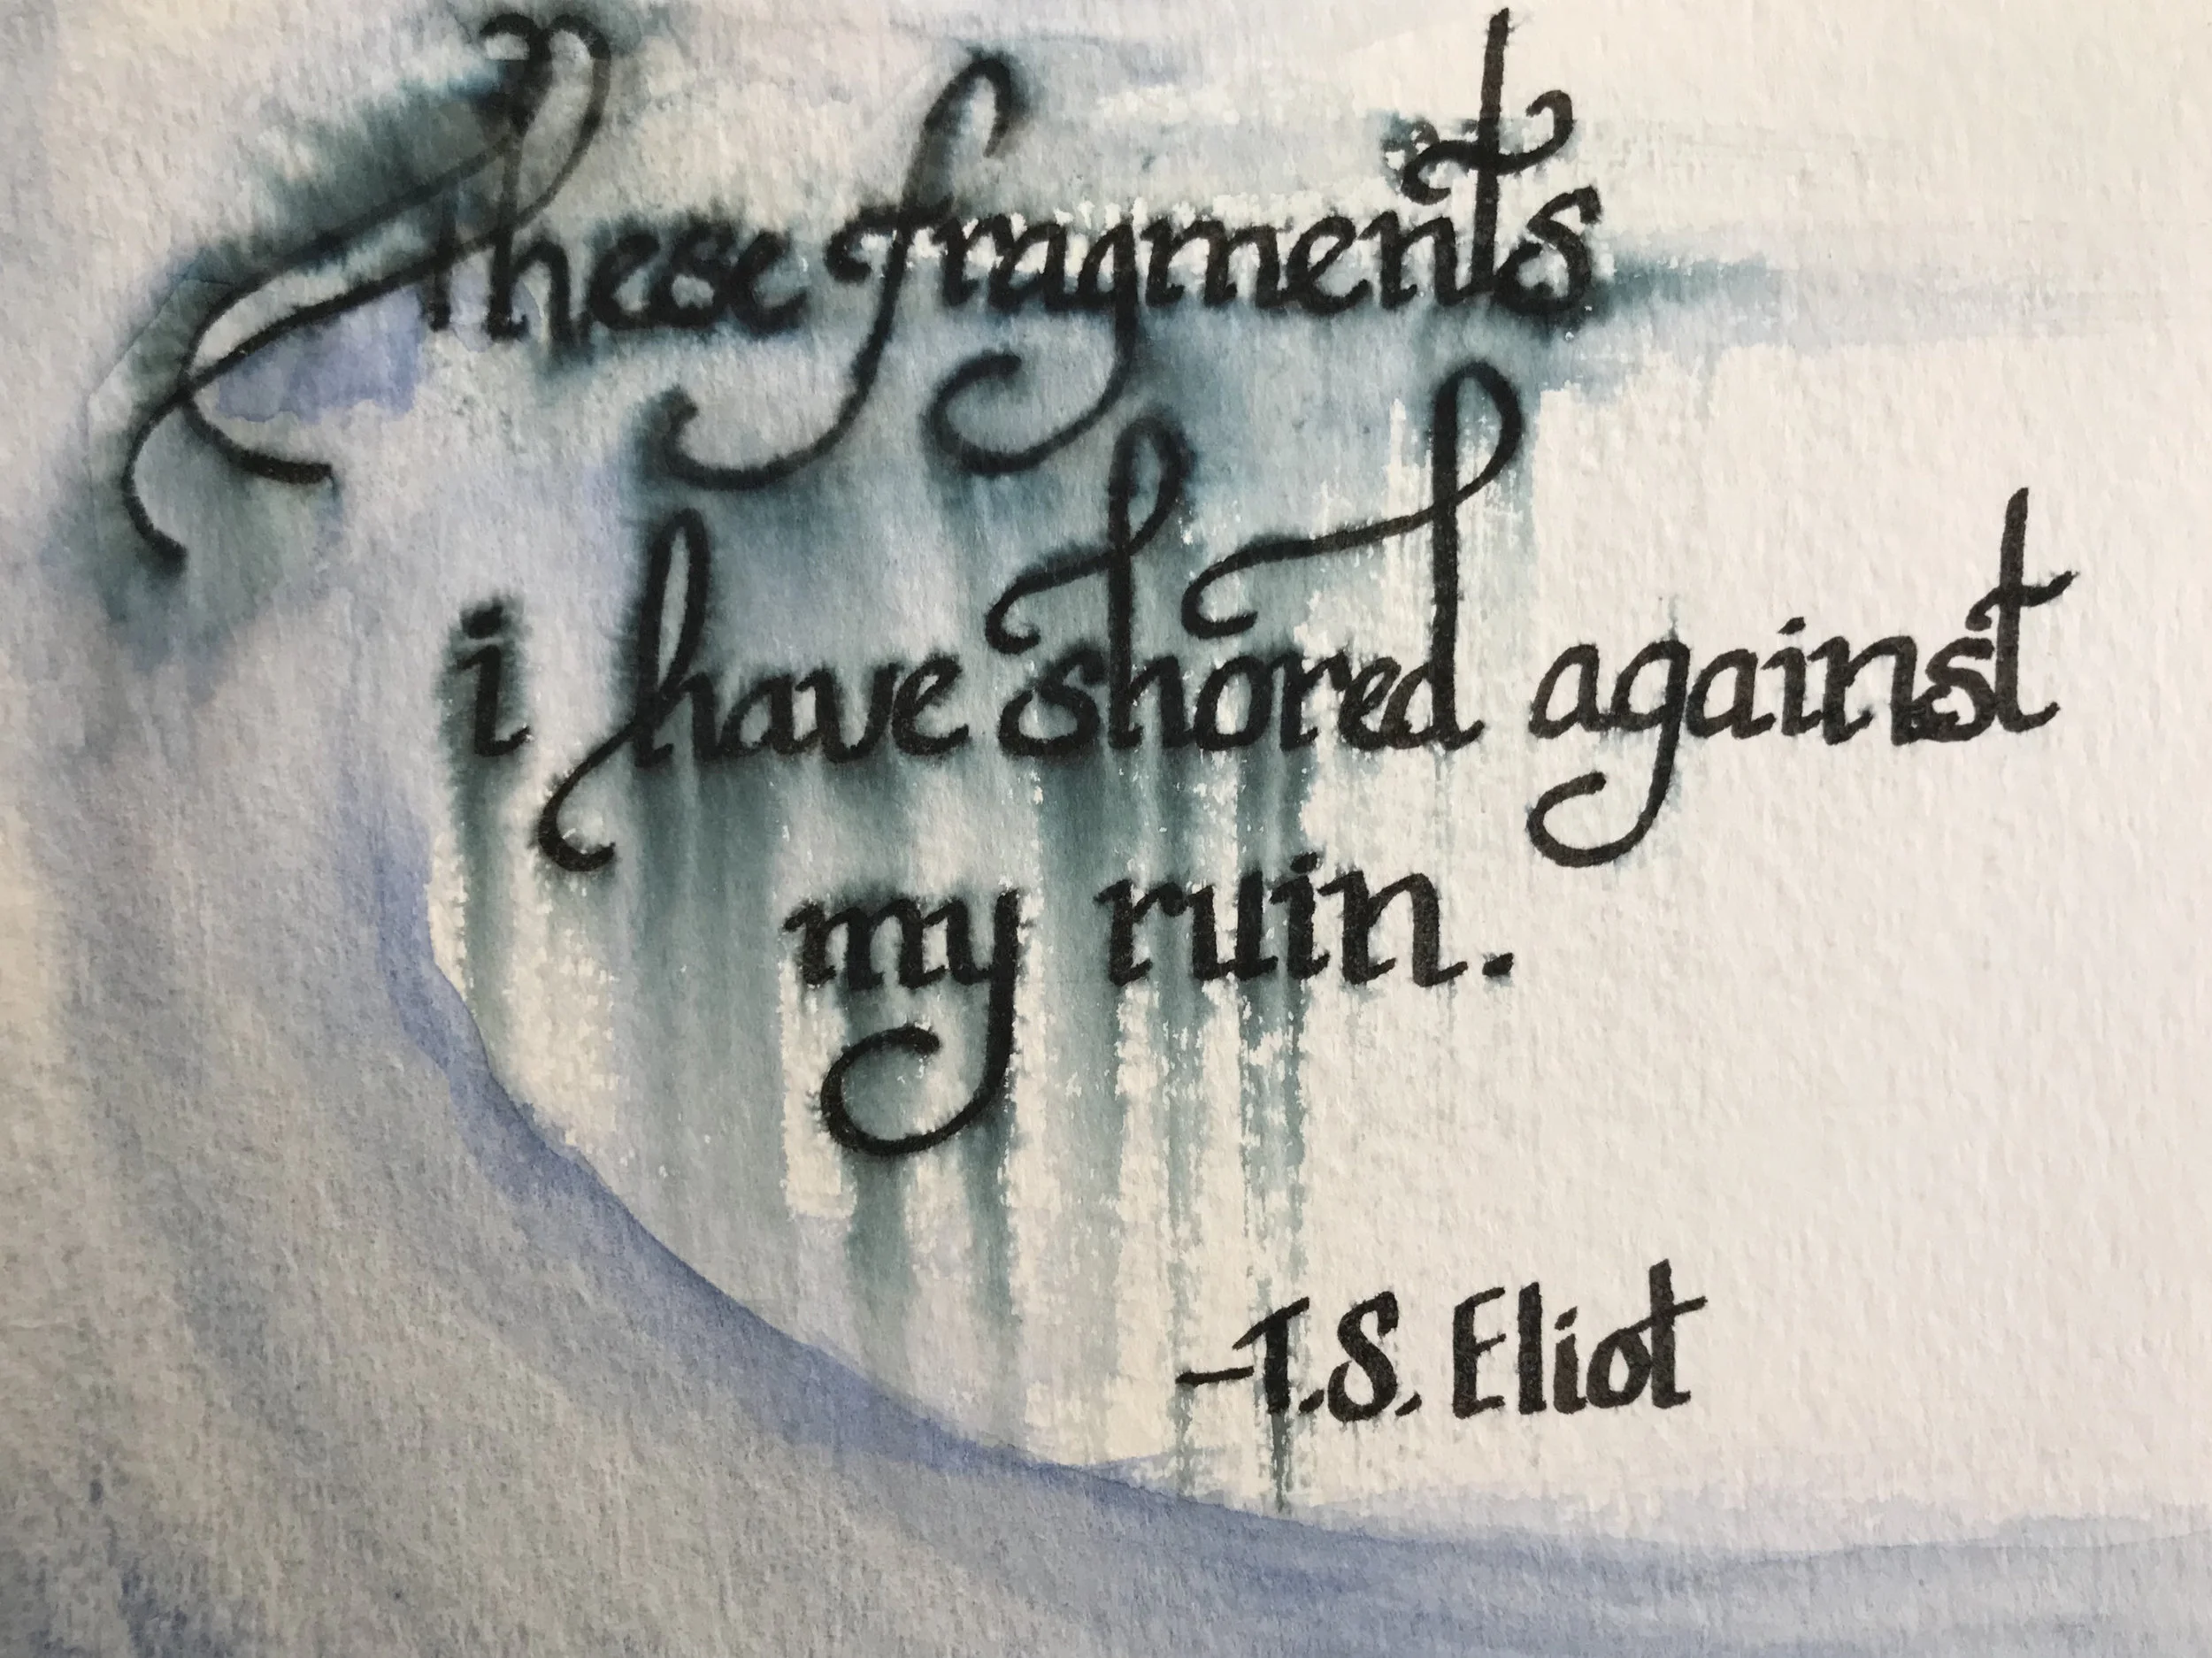 These fragments
i have shored against
my ruin.
-T.S. Eliot